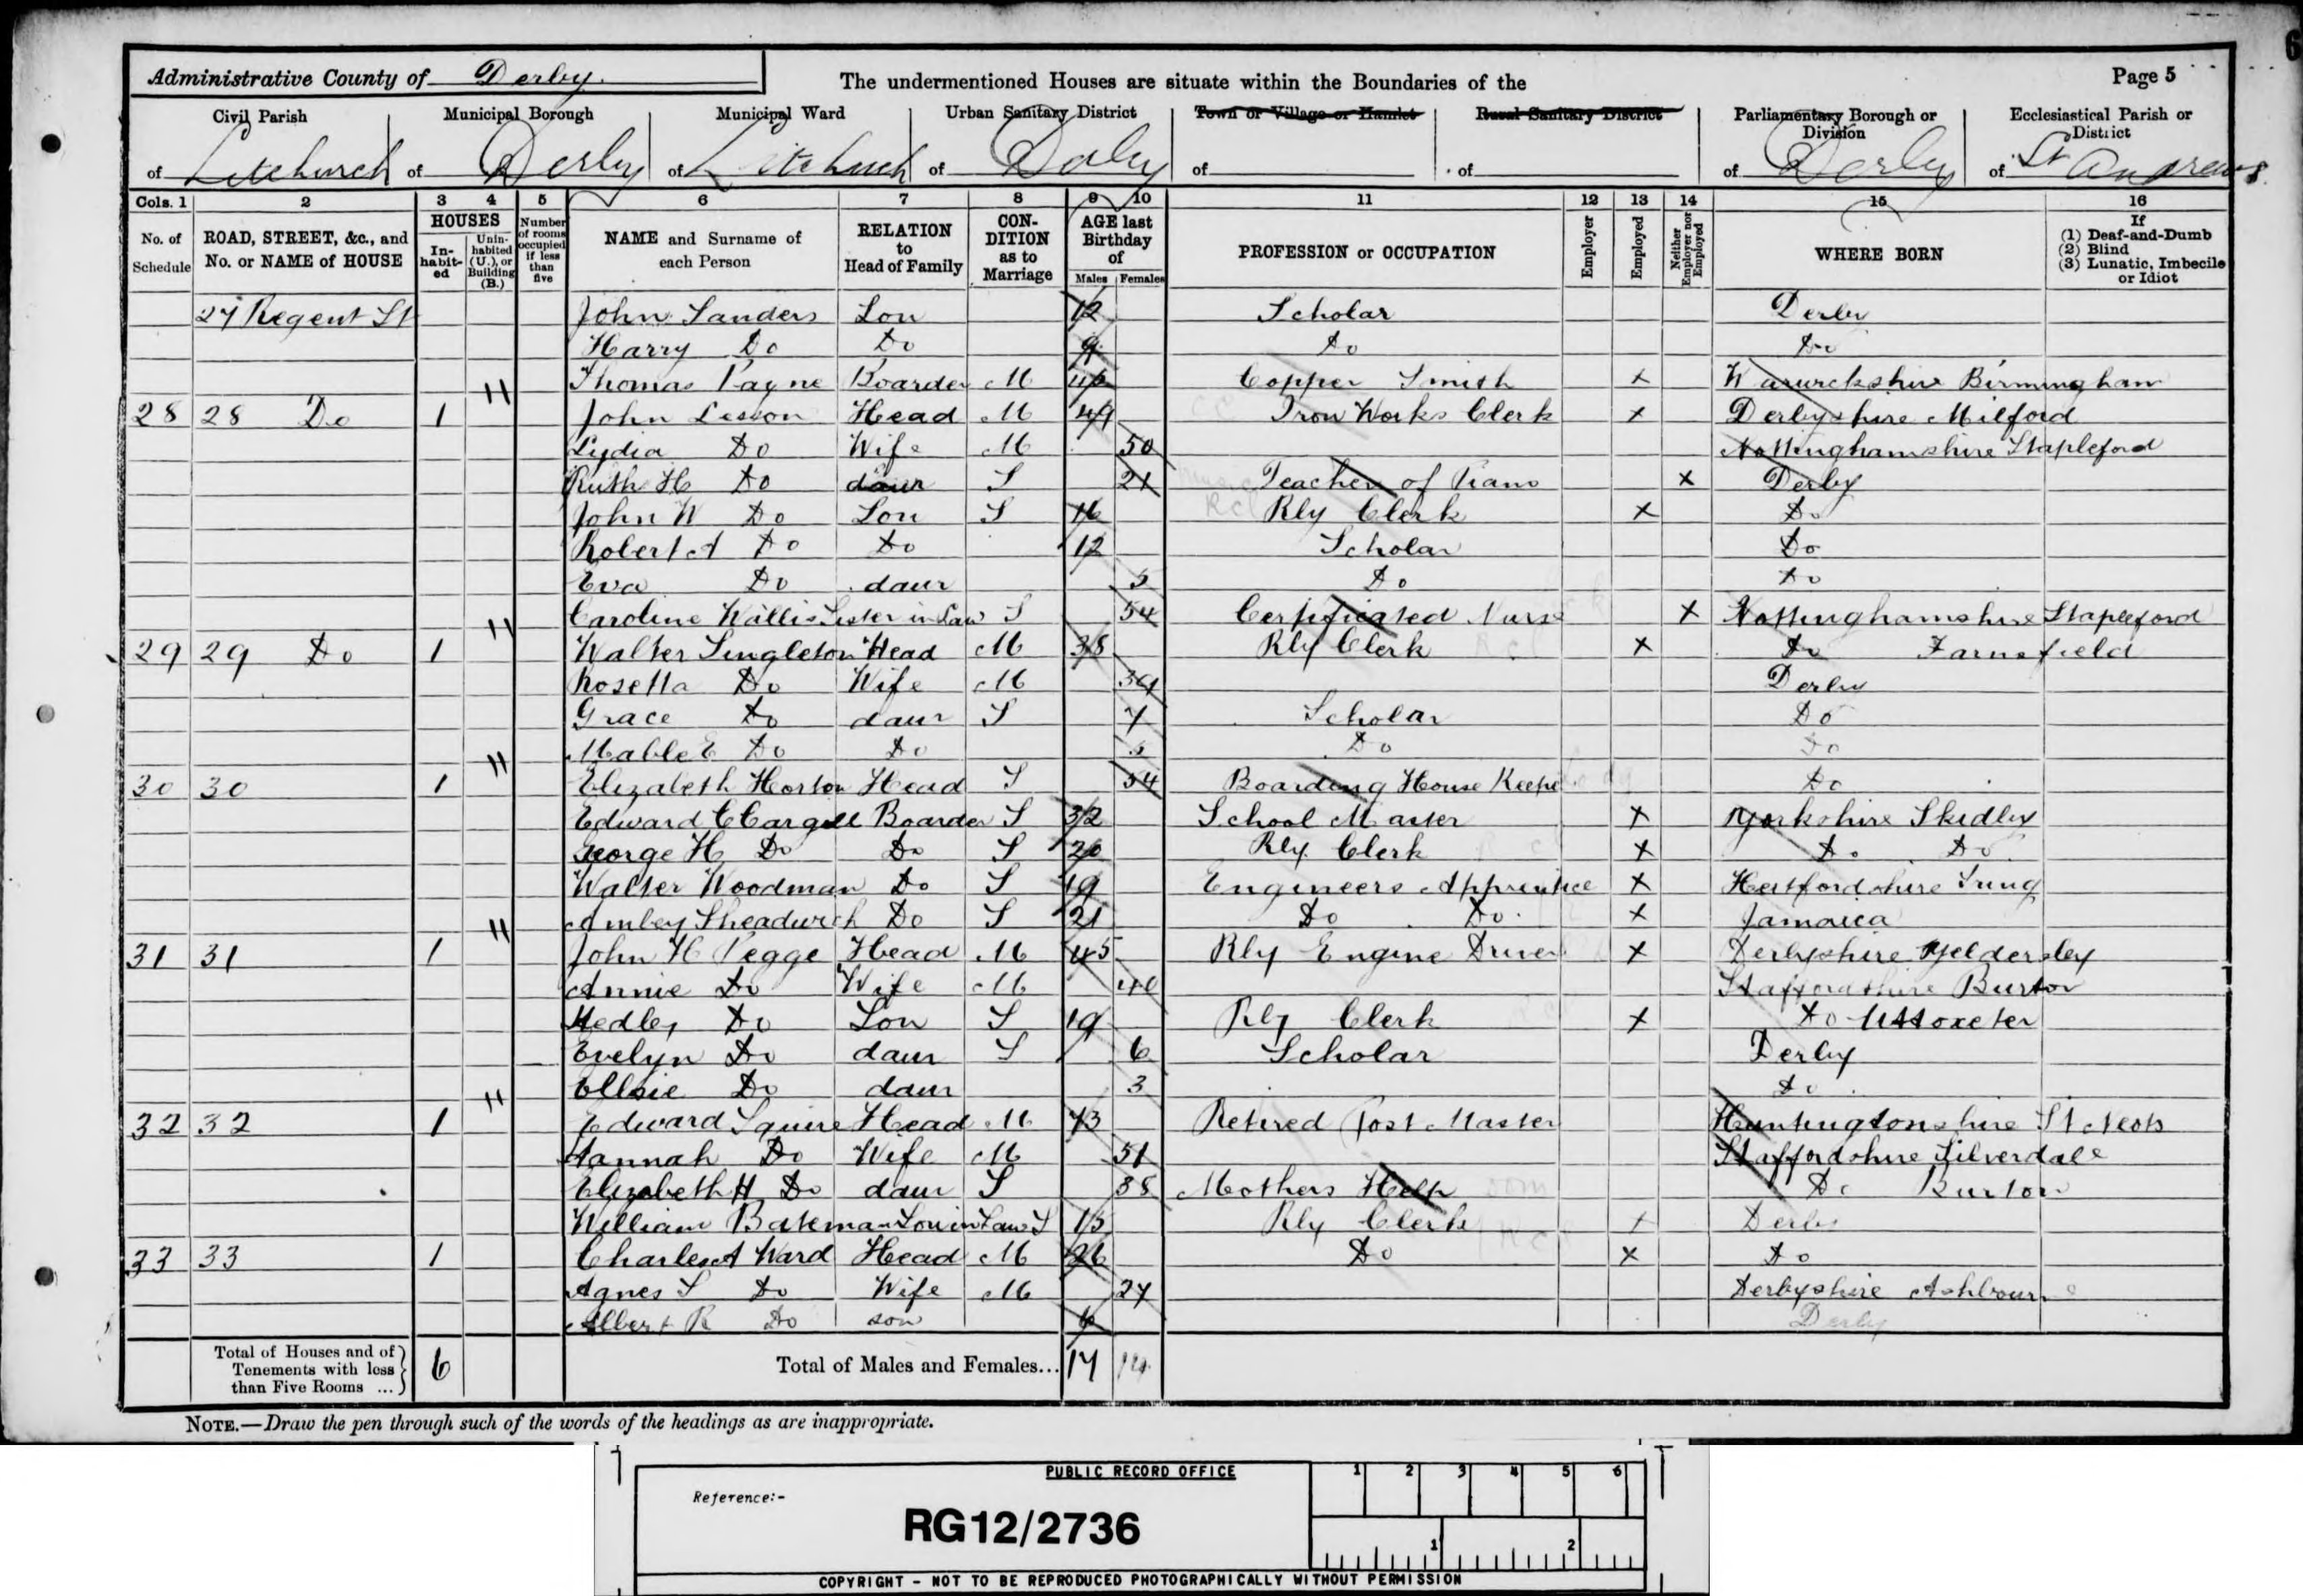 6
Administrative County of Derby.
The undermentioned Houses are situate within the Boundaries of the
Page 5
Civil Parish
Municipal Borough
Municipal Ward
Urban Sanitary District
Town or Village or Hamlet
Rural Sanitary District
Parliamentary Borough or Division
Ecclesiastical Parish or District
of Litchurch of Derby of Litchurch of Derby of of of Derby of St Andrews.
Cols. 1 2 3 4 5 6 7 8 9 10 11 12 13 14 15 16
No. of Schedule
ROAD, STREET, &c., and No. or NAME of HOUSE
HOUSES
Inhabited
Uninhabited (U.), or Building (B.)
Number of rooms occupied if less than five
NAME and Surname of each Person
RELATION to Head of Family
CONDITION as to Marriage
AGE last Birthday of
Males Females
PROFESSION or OCCUPATION
Employer
Employed
Neither Employer nor Employed
WHERE BORN
If
(1) Deaf-and-Dumb
(2) Blind
(3) Lunatic, Imbecile or Idiot
27 Regent St John Sanders Son 12 Scholar Derby
Harry Do Do 9 Do Do
Thomas Payne Boarder M Copper Smith x Warwickshire Birmingham
28 28 Do 1 John Lesson Head M 49 Iron Works Clerk x Derbyshire Milford
Lydia Do Wife M 50 Nottinghamshire Stapleford
Ruth H Do daur S 21 Teacher of Piano x Derby
John W Do Son S 16 Rly Clerk x Do
Robert A Do Do 12 Scholar Do
Eva Do daur 5 Do Do
Caroline Wallis Sister in Law S 54 Certificated Nurse x Nottinghamshire Stapleford
29 29 Do 1 Walter Singleton Head M 38 Rly Clerk x Do Farnsfield
Rosetta Do Wife M 39 Derby
Grace Do daur S 7 Scholar Do
Mable E Do Do 5 Do Do
30 30 1 Elizabeth Horton Head S 54 Boarding House Keeper Do
Edward C Cargill Boarder S 32 School Master x Yorkshire Skidby
George H Do Do S 20 Rly Clerk x Do Do
Walter Woodman Do S 19 Engineers Apprentice x Hertfordshire Tring
Do S 21 Do Do x Jamaica
31 31 1 John H Pegge Head M 45 Rly Engine Driver x Derbyshire Yeldersley
Annie Do Wife M 40 Staffordshire Burton
Hedley Do Son S 19 Rly Clerk x Do Uttoxeter
Evelyn Do daur S 6 Scholar Derby
Ellsie Do daur 3 Do
32 32 1 Edward Squire Head M 73 Retired Post Master Huntingtonshire St Neots
Hannah Do Wife M 51 Staffordshire Silverdale
Elizabeth H Do daur S 38 Mothers Help Do Burton
William Bateman Son in Law S 15 Rly Clerk x Derby
33 33 1 Charles A Ward Head M 26 Do x Do
Agnes S Do Wife M 27 Derbyshire Ashbourne
Albert R Do son 6 Derby
Total of Houses and of Tenements with less than Five Rooms ... 6
Total of Males and Females... 17 14
NOTE.—Draw the pen through such of the words of the headings as are inappropriate.
PUBLIC RECORD OFFICE
1 2 3 4 5 6
Reference:-
RG12/2736
1 2
COPYRIGHT - NOT TO BE REPRODUCED PHOTOGRAPHICALLY WITHOUT PERMISSION